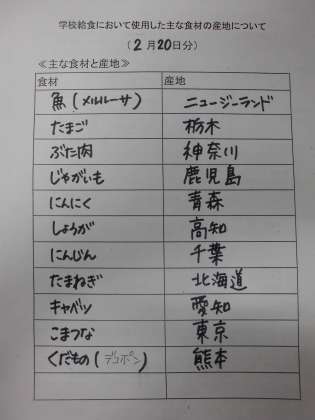 学校給食において使用した主な食材の産地について
(2月20日分)
≪主な食材と産地≫
食材 産地
魚(メルルーサ) ニュージーランド
たまご 栃木
ぶた肉 神奈川
じゃがいも 鹿児島
にんにく 青森
しょうが 高知
にんじん 千葉
たまねぎ 北海道
キャベツ 愛知
こまつな 東京
くだもの(デコポン) 熊本